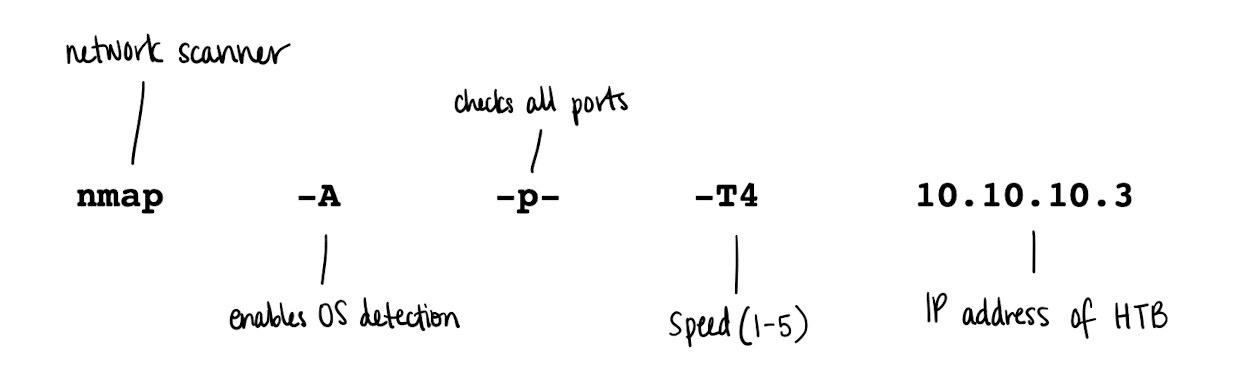 network scanner
checks all ports
nmap -A -p- -T4 10.10.10.3
enables OS detection
Speed (1-5)
IP address of HTB